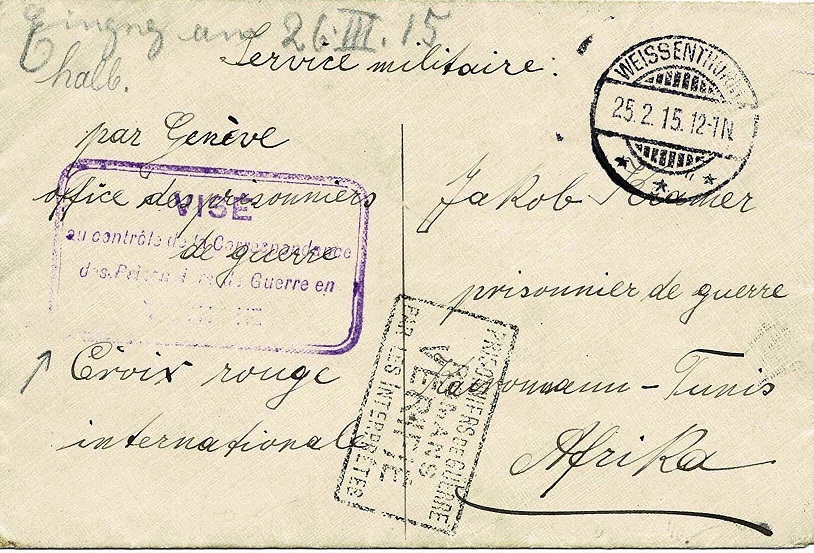 26.III.15
halb.
Service militaire.
WEISSENTHURM
25.2.15.12-1N.
par Genève
office des prisonniers
de guerre
Croix rouge
internationale
VISÉ
au contrôle de la Correspondance
des Prisonniers de Guerre en
Jakob Kramer
prisonnier de guerre
Kairouann - Tunis
Afrika
PRISONNIERS DE GUERRE
ALLEMANDS
VÉRIFIÉ
PAR LES INTERPRÈTES